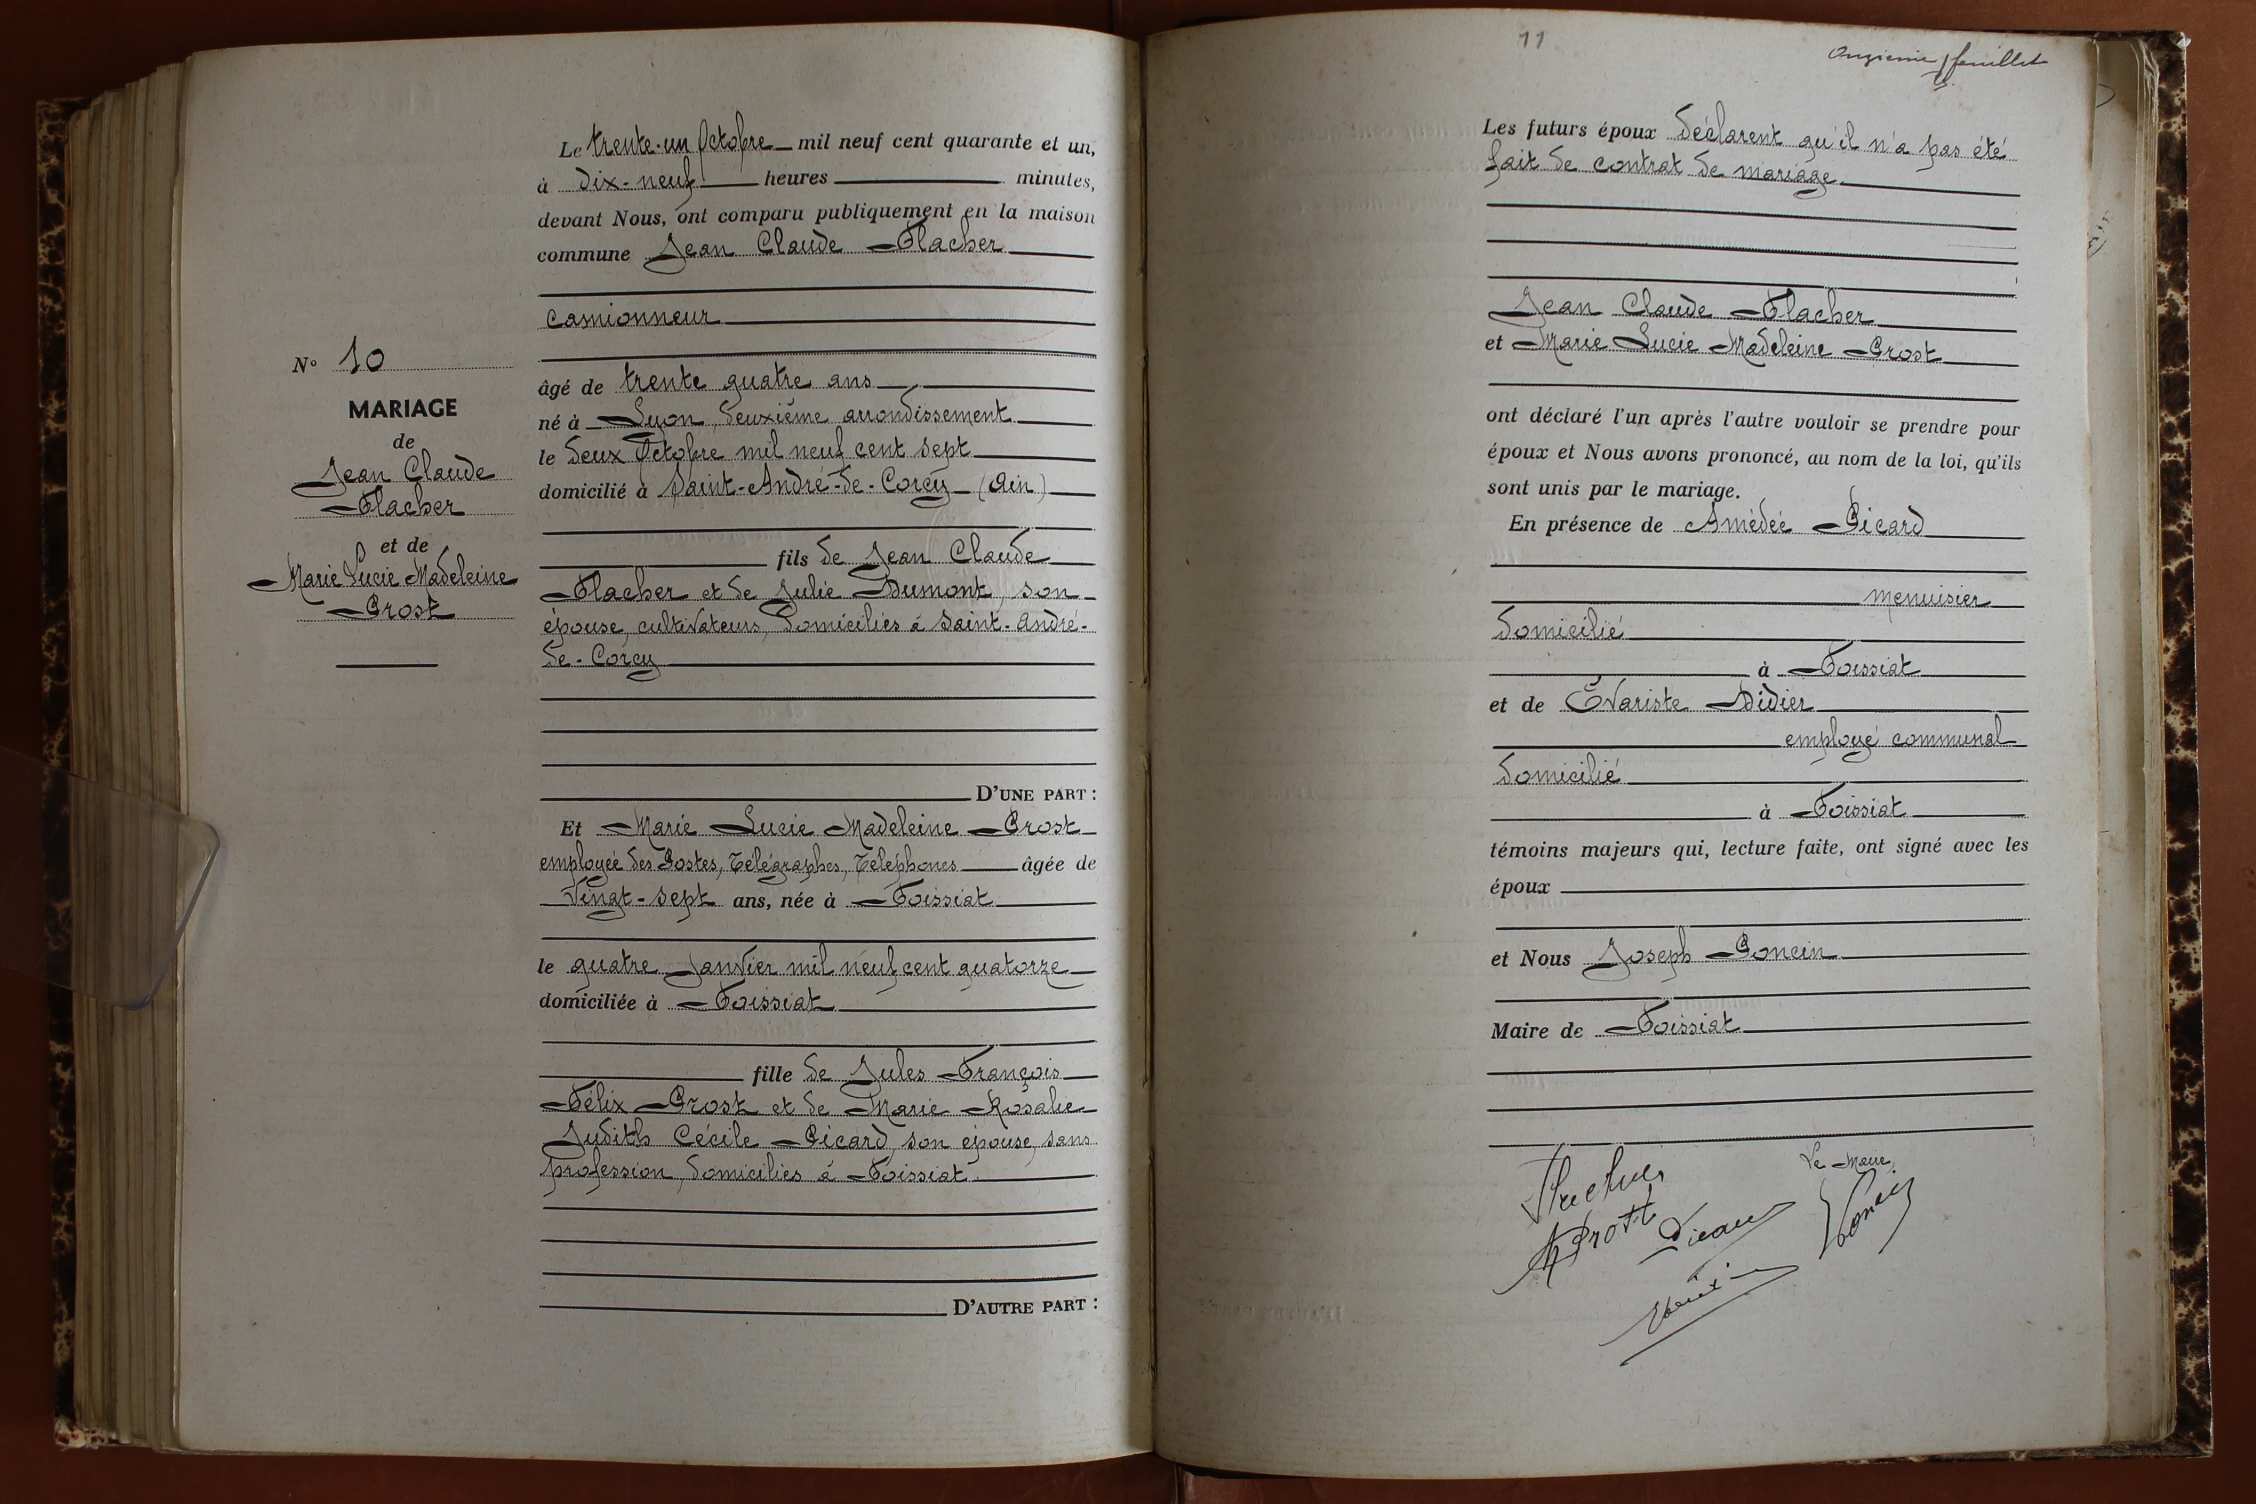 N° 10
MARIAGE
de
Jean Claude
Flacher
et de
Marie Lucie Madeleine
Prost
Le trente-un Octobre mil neuf cent quarante et un,
à dix-neuf heures minutes,
devant Nous, ont comparu publiquement en la maison
commune Jean Claude Flacher
camionneur
âgé de trente quatre ans
né à Lyon, deuxième arrondissement
le deux Octobre mil neuf cent sept
domicilié à Saint-André-de-Corcy (Ain)
fils de Jean Claude
Flacher et de Julie Dumont, son
épouse, cultivateurs, domiciliés à Saint-André-
de-Corcy
D'UNE PART :
Et Marie Lucie Madeleine Prost
employée des Postes, Télégraphes, Téléphones âgée de
vingt-sept ans, née à Foissiat
le quatre Janvier mil neuf cent quatorze
domiciliée à Foissiat
fille de Jules François
Félix Prost et de Marie Rosalie
Judith Cécile Picard, son épouse, sans
profession, domiciliés à Foissiat
D'AUTRE PART :
11
Onzième feuillet
Les futurs époux déclarent qu'il n'a pas été
fait de contrat de mariage
Jean Claude Flacher
et Marie Lucie Madeleine Prost
ont déclaré l'un après l'autre vouloir se prendre pour
époux et Nous avons prononcé, au nom de la loi, qu'ils
sont unis par le mariage.
En présence de Amédée Picard
menuisier
domicilié
à Foissiat
et de Évariste Didier
employé communal
domicilié
à Foissiat
témoins majeurs qui, lecture faite, ont signé avec les
époux
et Nous Joseph Poncin
Maire de Foissiat
Le Maire,
Flacher
M Prost
Poncin